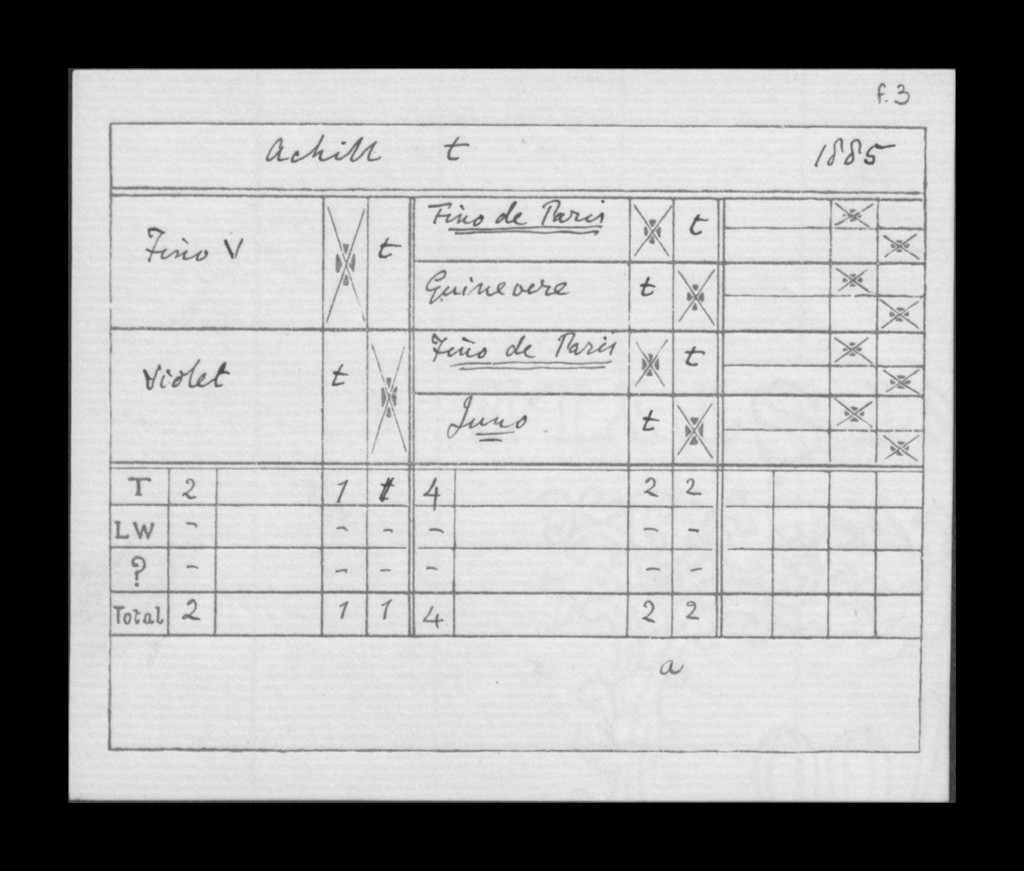 f. 3
Achill t 1885
Fino V t
Fino de Paris t
Guinevere t
Violet t
Fino de Paris t
Juno t
T 2 1 1 4 2 2
LW - - - - - -
? - - - - - -
Total 2 1 1 4 2 2
a